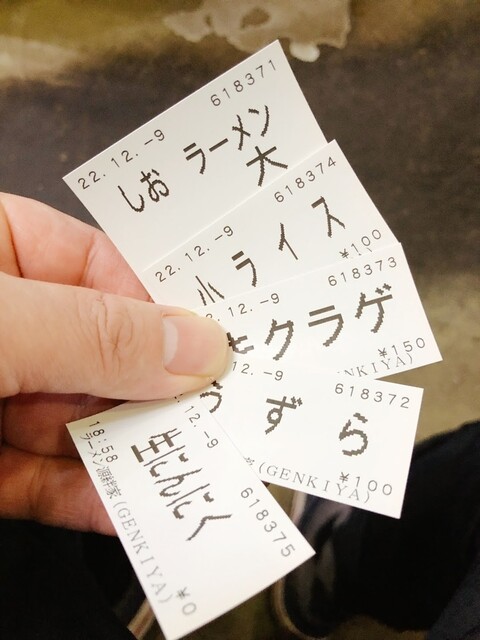 22.12.-9 618371
しお ラーメン
大
22.12.-9 618374
小ライス
¥100
.12.-9 618373
キクラゲ
¥150
(GENKIYA)
12.-9 618372
うずら
¥100
(GENKIYA)
12.-9 618375
生にんにく
18:58 ¥0
(GENKIYA)